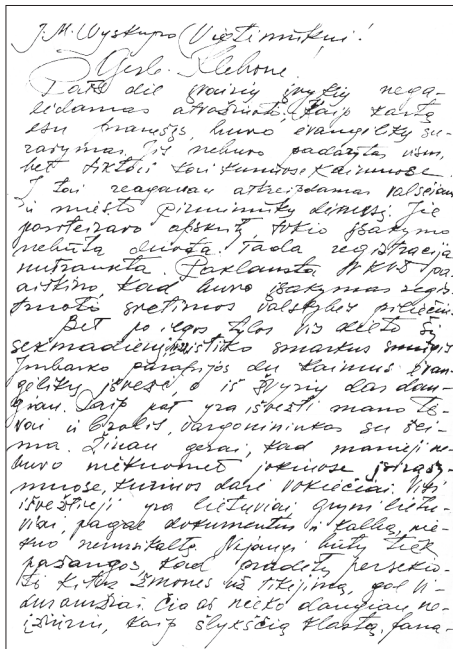 J. M. Vyskupo Viešti mūkui!
Gerb. Klebone!
Patš die įvairių įvykių nega-
lėdamas atvažiuoti. Kaip kartą
esu pranešęs, buvo evangelikų su-
rašymas. Jis nebuvo padarytas visur,
bet tiktai kai kuriuose kaimuose.
Į tai reagavau atkreipdamas valsčiaus
ir miesto pirmininkų dėmesį. Jie
pasiteiravo apskrity, tokio įsakymo
nebūtą duota. Tada registracija
nutraukta. Paklausta NKVD pa-
aiškino kad buvo įsakymas regis-
truoti svetimos valstybės piliečius.
Bet po ilgos tylos vis dėlto šį
sekmadienį ištiko smarkus smūgis
Jurbarko parapijos du kaimus evan-
gelikų išvežė, o iš Žvyrių dar dau-
giau. Taip pat yra išvežti mano tė-
vai ir brolis vargonininkas su šei-
ma. Žinau gerai, kad manieji ne-
buvo niekuomet jokiuose įsirašy-
muose, kuriuos darė vokiečiai. Visi
išvežtieji yra lietuviai, gryni lietu-
viai pagal dokumentus ir kalbą, nie-
kuo nenusikaltę. Nejaugi būtų tiek
pažangos kad pradėtų persekio-
ti kitus žmones už tikėjimą, gal vi-
duramžiai. Čia aš nieko daugiau ne-
įžiūriu, kaip šlykščią klastą, fana-